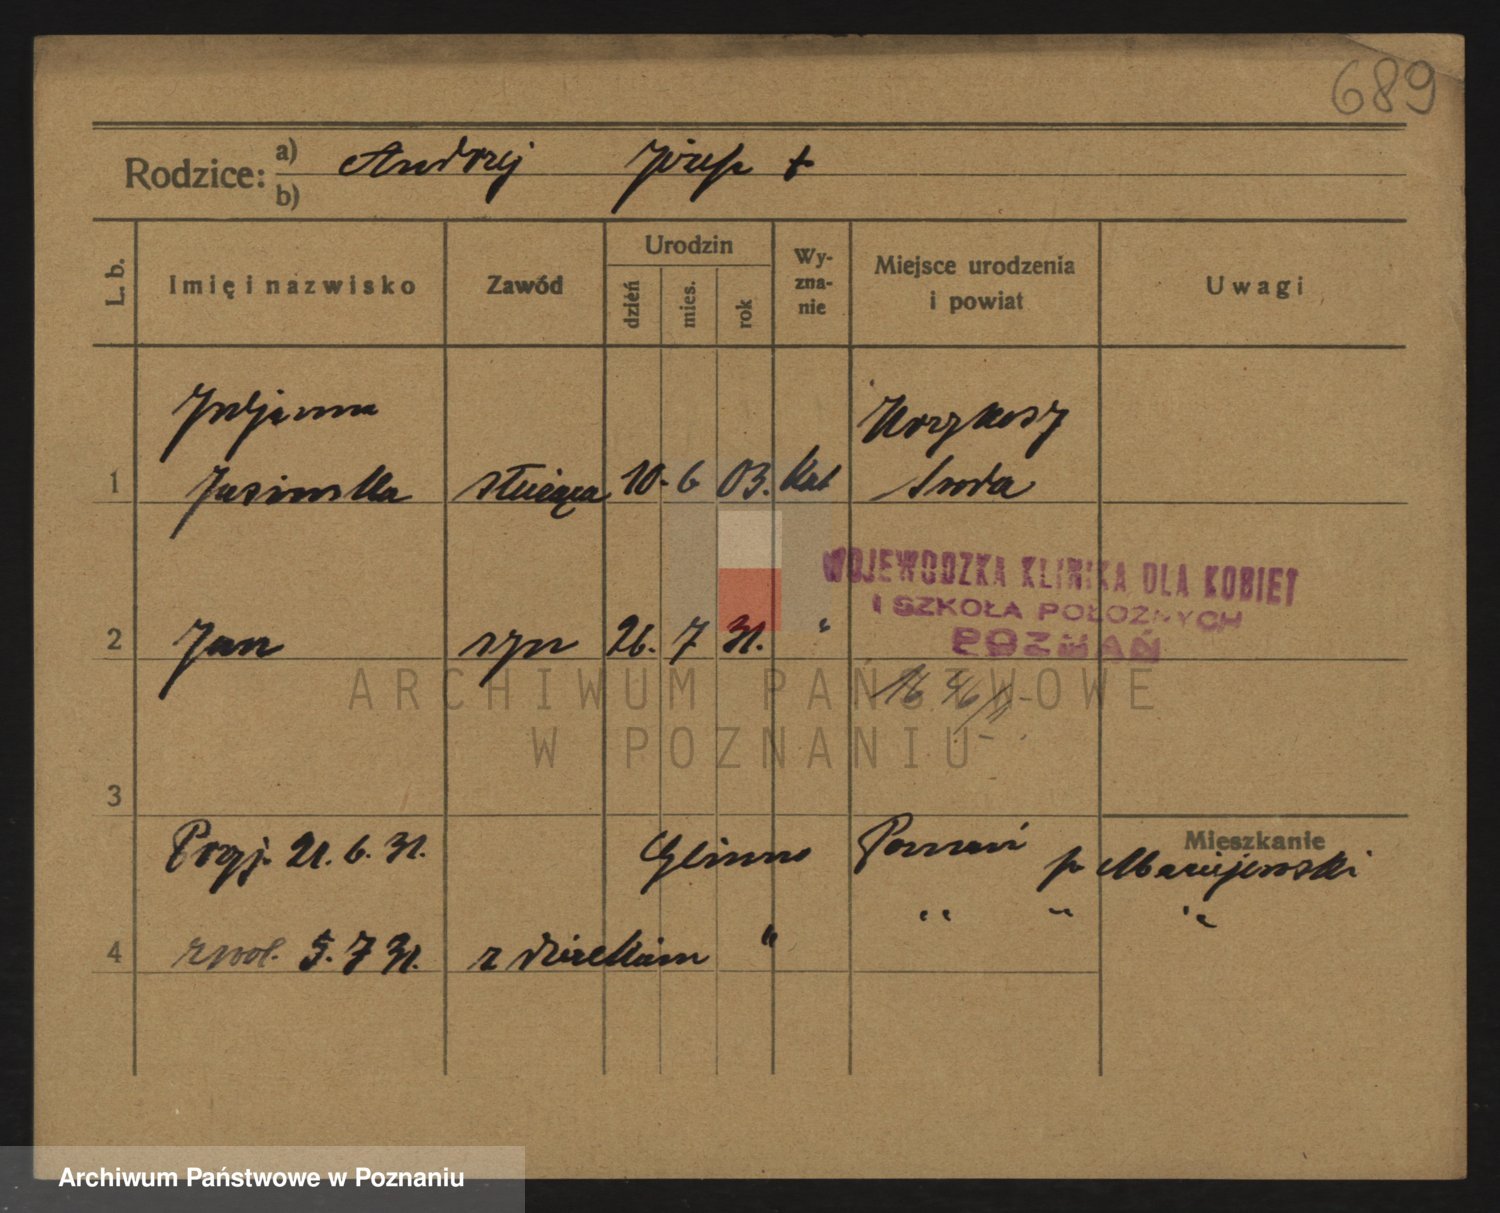 689
Rodzice: a) Andrzej Józefa +
b)
L. b. Imię i nazwisko Zawód Urodzin dzień mies. rok Wy-zna-nie Miejsce urodzenia i powiat Uwagi
Juljanna
1 Jasińska służąca 10. 6 03. kat Środa
WOJEWÓDZKA KLINIKA DLA KOBIET
I SZKOŁA POŁOŻNYCH
POZNAŃ
2 Jan syn 26. 7 31. "
3
Mieszkanie
Przyj. 21. 6. 31. Poznań p. Maciejewski
4 zwol. 5. 7 31. z dzieckiem " " " "
ARCHIWUM PAŃSTWOWE
W POZNANIU
Archiwum Państwowe w Poznaniu